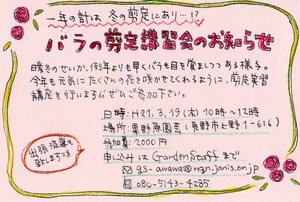 一年の計は 冬の剪定にあり…!?
バラの剪定講習会のお知らせ
暖冬のせいか、例年より早くバラも目を覚ましつつある様子。
今年も元気にたくさんの花を咲かせてくれるように、剪定実習
講座を行いますので是非ご参加下さい。
日時:H21.3.19(木)10時~12時
場所:粟野原園芸(長野市上野1-616)
参加費:2000円
申し込みは GardenStaff まで
gs-awawa@ngn.janis.or.jp
080-5143-4285
出張指導も
致します